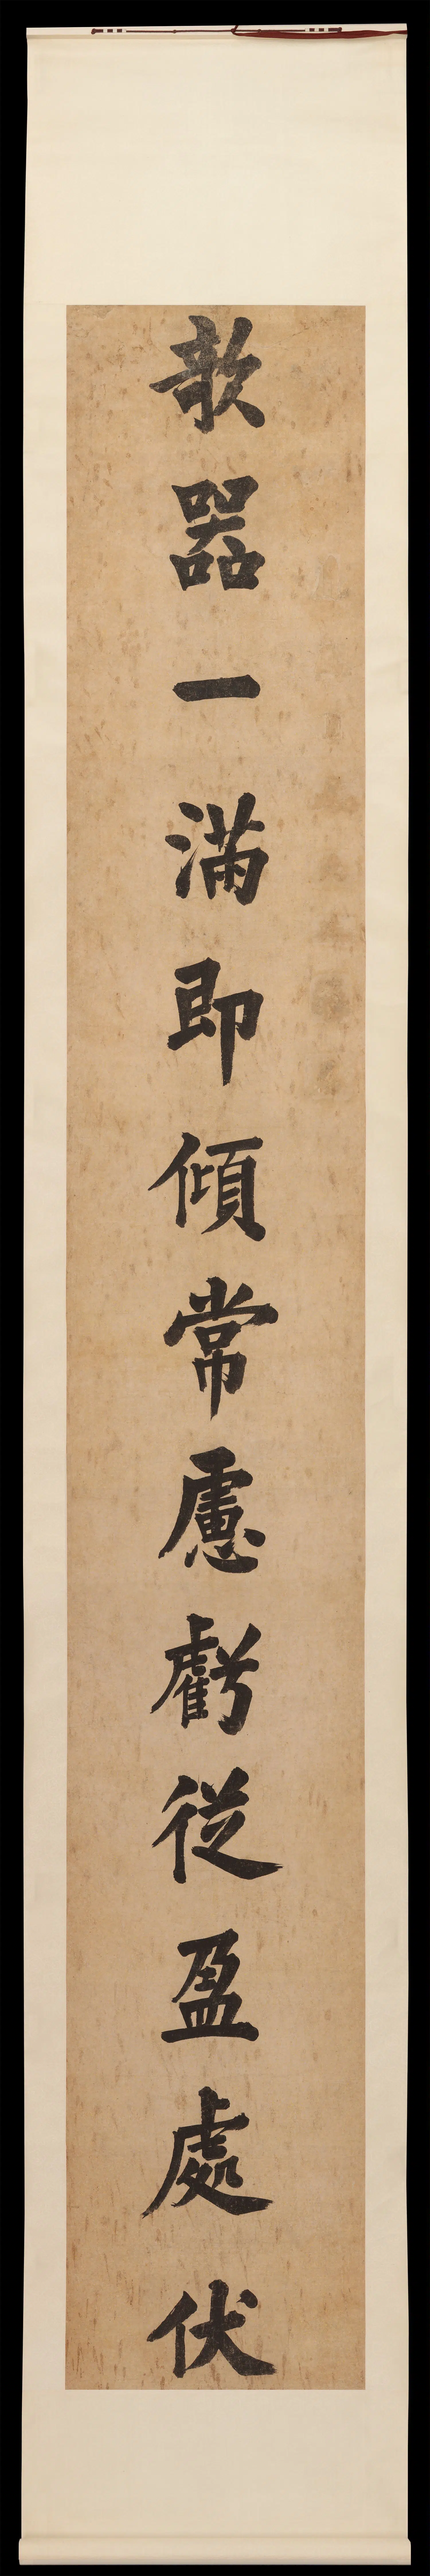 欹器一滿即傾常慮虧從盈處伏